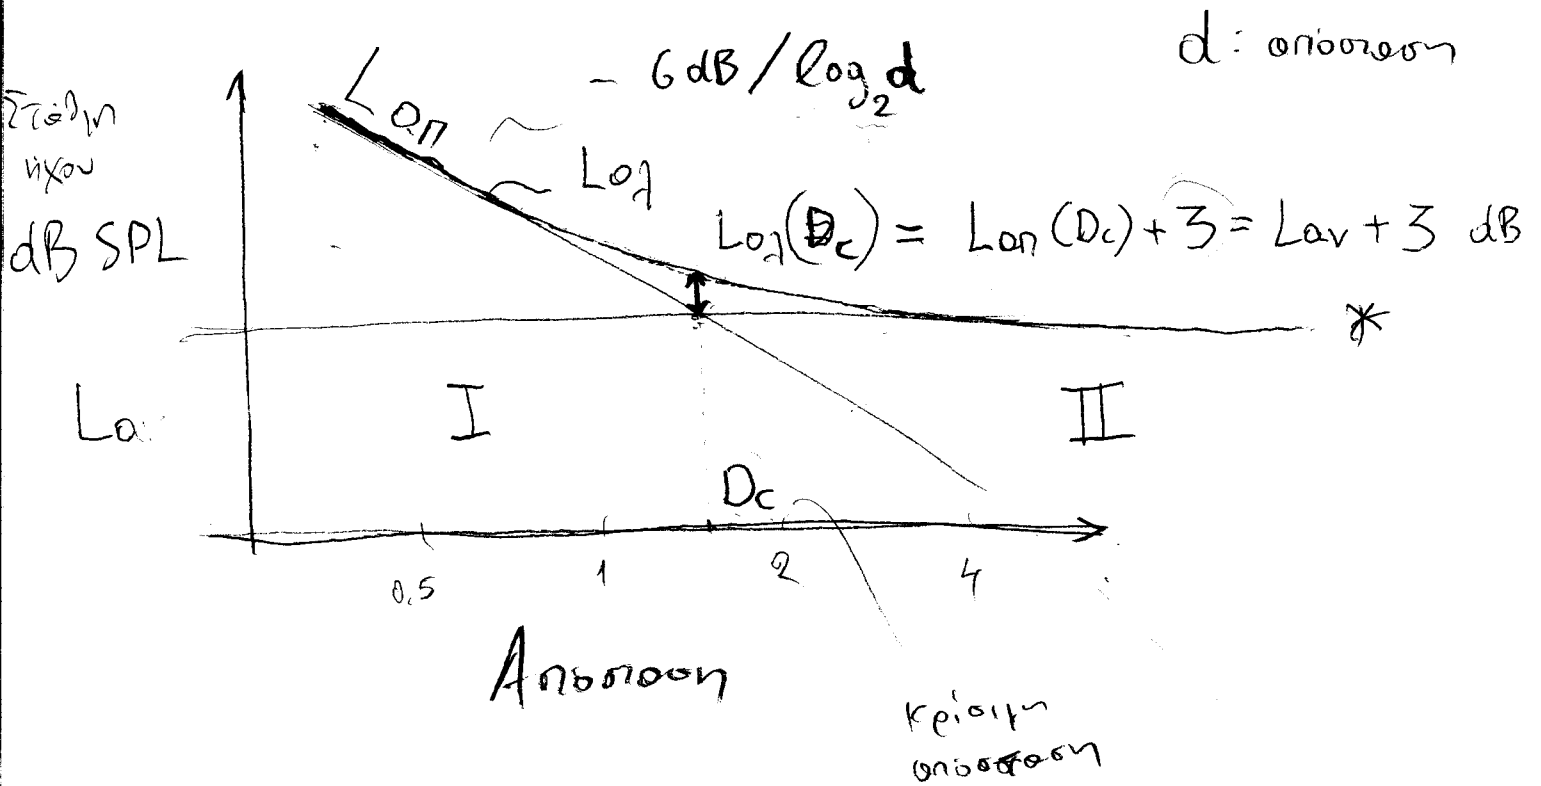 d: απόσταση
- 6 dB / log₂d
Στάθμη
ήχου
dB SPL
Lαπ
Lολ
Lολ(Dc) = Lαπ (Dc) + 3 = Lαν + 3 dB
*
Lα
I
II
Dc
0.5 1 2 4
Απόσταση
κρίσιμη
απόσταση